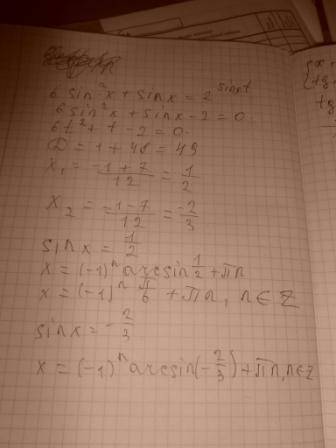 6 sin²x + sinx = 2 sinx=t
6 sin²x + sinx - 2 = 0.
6t² + t - 2 = 0.
D = 1 + 48 = 49
x₁ = (-1+7)/12 = 1/2
x₂ = (-1-7)/12 = -2/3
sinx = 1/2
x = (-1)ⁿ arcsin 1/2 + πn
x = (-1)ⁿ π/6 + πn, n ∈ Z
sinx = -2/3
x = (-1)ⁿ arcsin(-2/3) + πn, n∈Z